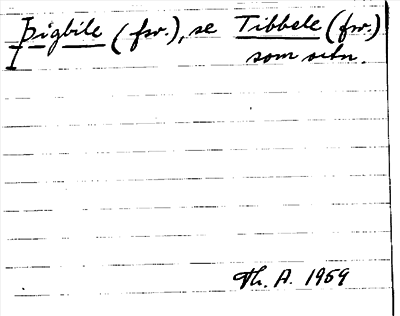 þigbile (fsv.), se Tibbele (fsv.)
som ortn.
Th. A. 1959